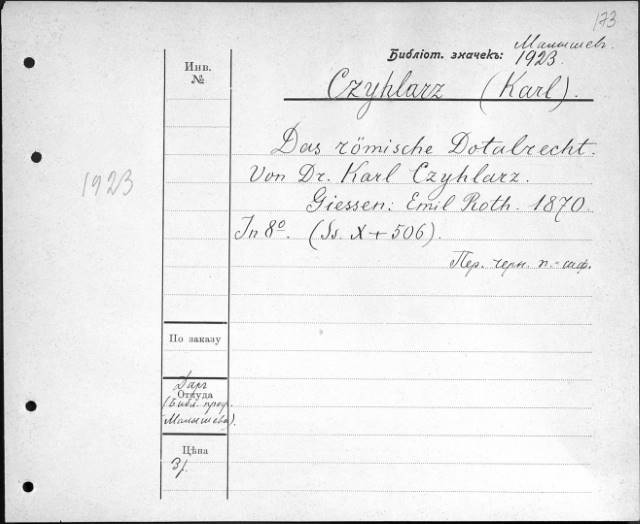 173
Малышевъ.
Библіот. значекъ: 1923.
Инв. №
Czyhlarz (Karl).
1923
Das römische Dotalrecht.
Von Dr. Karl Czyhlarz.
Giessen: Emil Roth. 1870.
In 8º. (Ss. X + 506).
Пер. черн. п.-
По заказу
Даръ
Откуда
(Библ. проф.
Малышева).
Цѣна
3р.